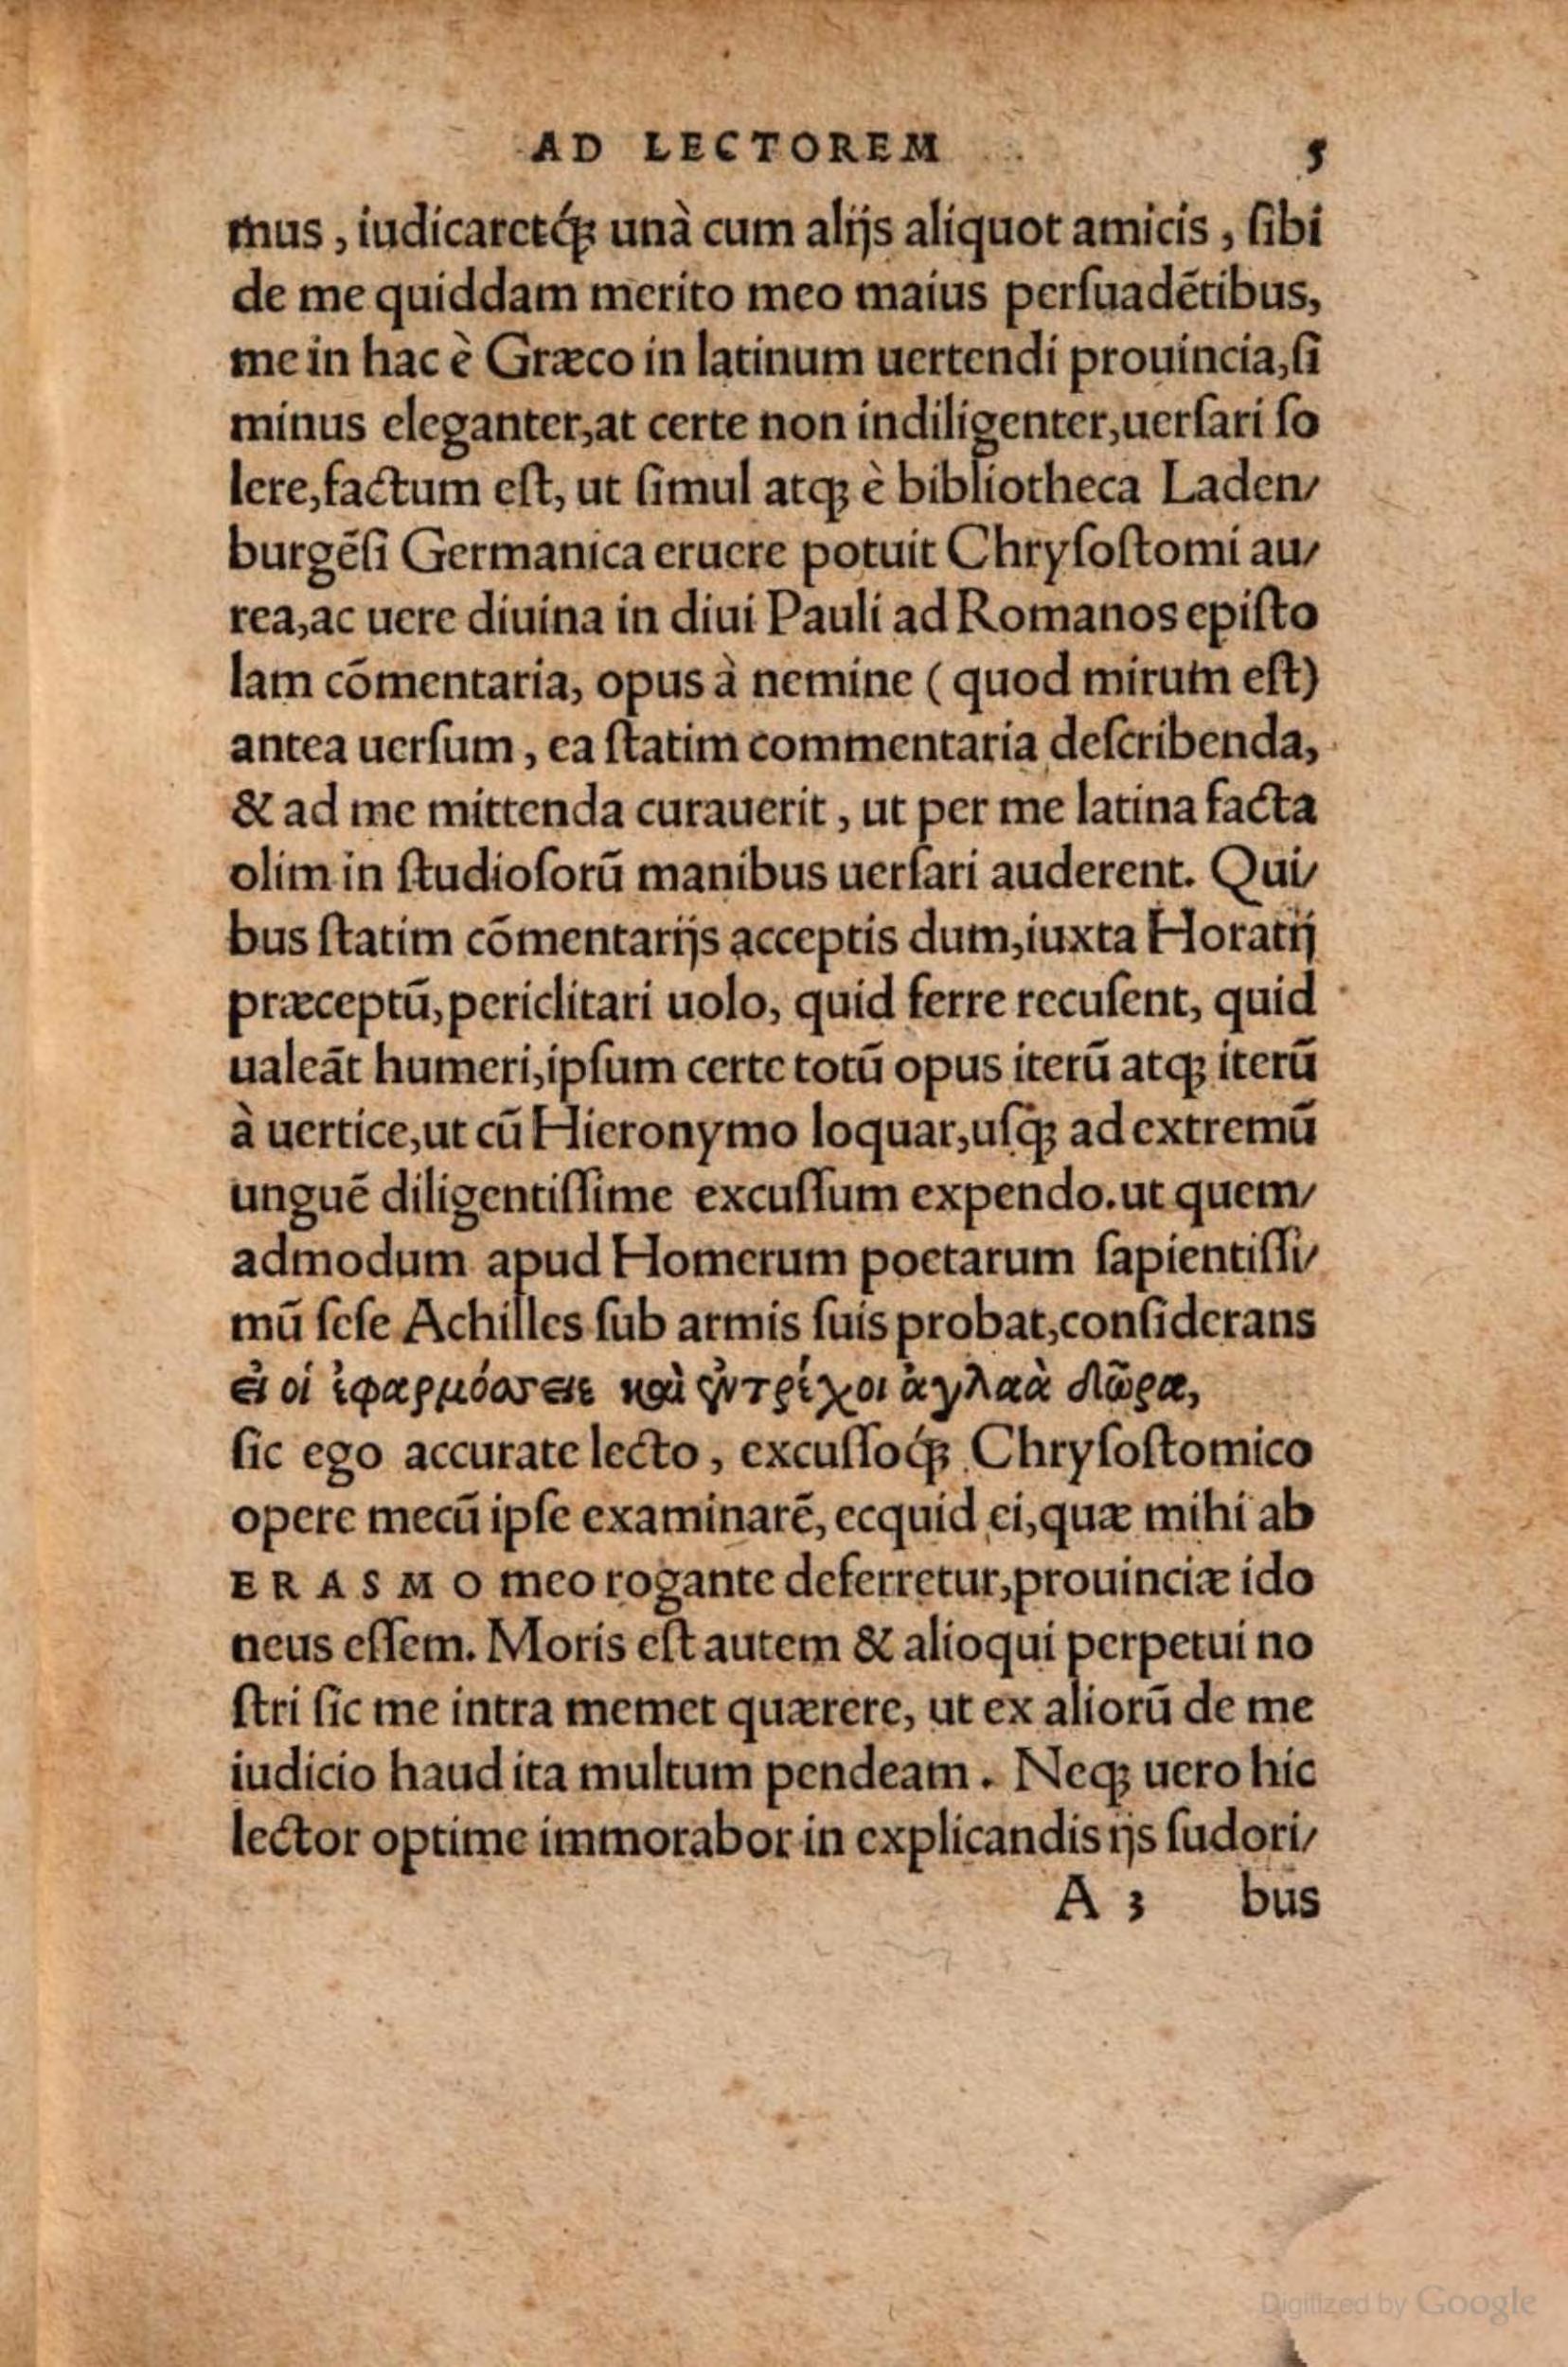 AD LECTOREM 5
mus, iudicaretq́ꝫ unà cum alijs aliquot amicis, ſibi
de me quiddam merito meo maius perſuadẽtibus,
me in hac è Græco in latinum uertendi prouincia, ſi
minus eleganter, at certe non indiligenter, uerſari ſo
lere, factum eſt, ut ſimul atqꝫ è bibliotheca Laden/
burgẽſi Germanica eruere potuit Chryſoſtomi au/
rea, ac uere diuina in diui Pauli ad Romanos epiſto
lam cõmentaria, opus à nemine (quod mirum eſt)
antea uerſum, ea ſtatim commentaria deſcribenda,
& ad me mittenda curauerit, ut per me latina facta
olim in ſtudioſorũ manibus uerſari auderent. Qui/
bus ſtatim cõmentarijs acceptis dum, iuxta Horatij
præceptũ, periclitari uolo, quid ferre recuſent, quid
ualeãt humeri, ipſum certe totũ opus iterũ atqꝫ iterũ
à uertice, ut cũ Hieronymo loquar, uſqꝫ ad extremũ
unguẽ diligentiſſime excuſſum expendo. ut quem/
admodum apud Homerum poetarum ſapientiſſi/
mũ ſeſe Achilles ſub armis ſuis probat, conſiderans
εἰ οἷ ἐφαρμόσειε καὶ ἐντρέχοι ἀγλαὰ δῶρα,
ſic ego accurate lecto, excuſſoq́ꝫ Chryſoſtomico
opere mecũ ipſe examinarẽ, ecquid ei, quæ mihi ab
ERASMO meo rogante deferretur, prouinciæ ido
neus eſſem. Moris eſt autem & alioqui perpetui no
ſtri ſic me intra memet quærere, ut ex aliorũ de me
iudicio haud ita multum pendeam. Neqꝫ uero hic
lector optime immorabor in explicandis ijs ſudori/
A 3 bus
Digitized by Google